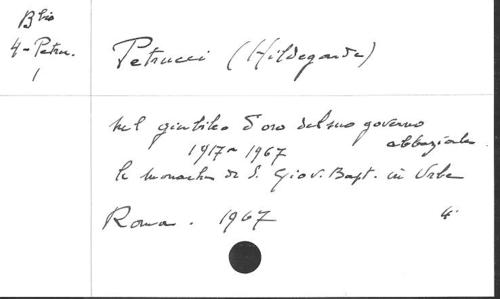 Bbio
4-Petru.
1
Petrucci (Hildegarda)
nel giubileo d'oro del suo governo
abbaziale
1917-1967
le monache di S. Giov. Bapt. in Urbe
Roma. 1967
4°